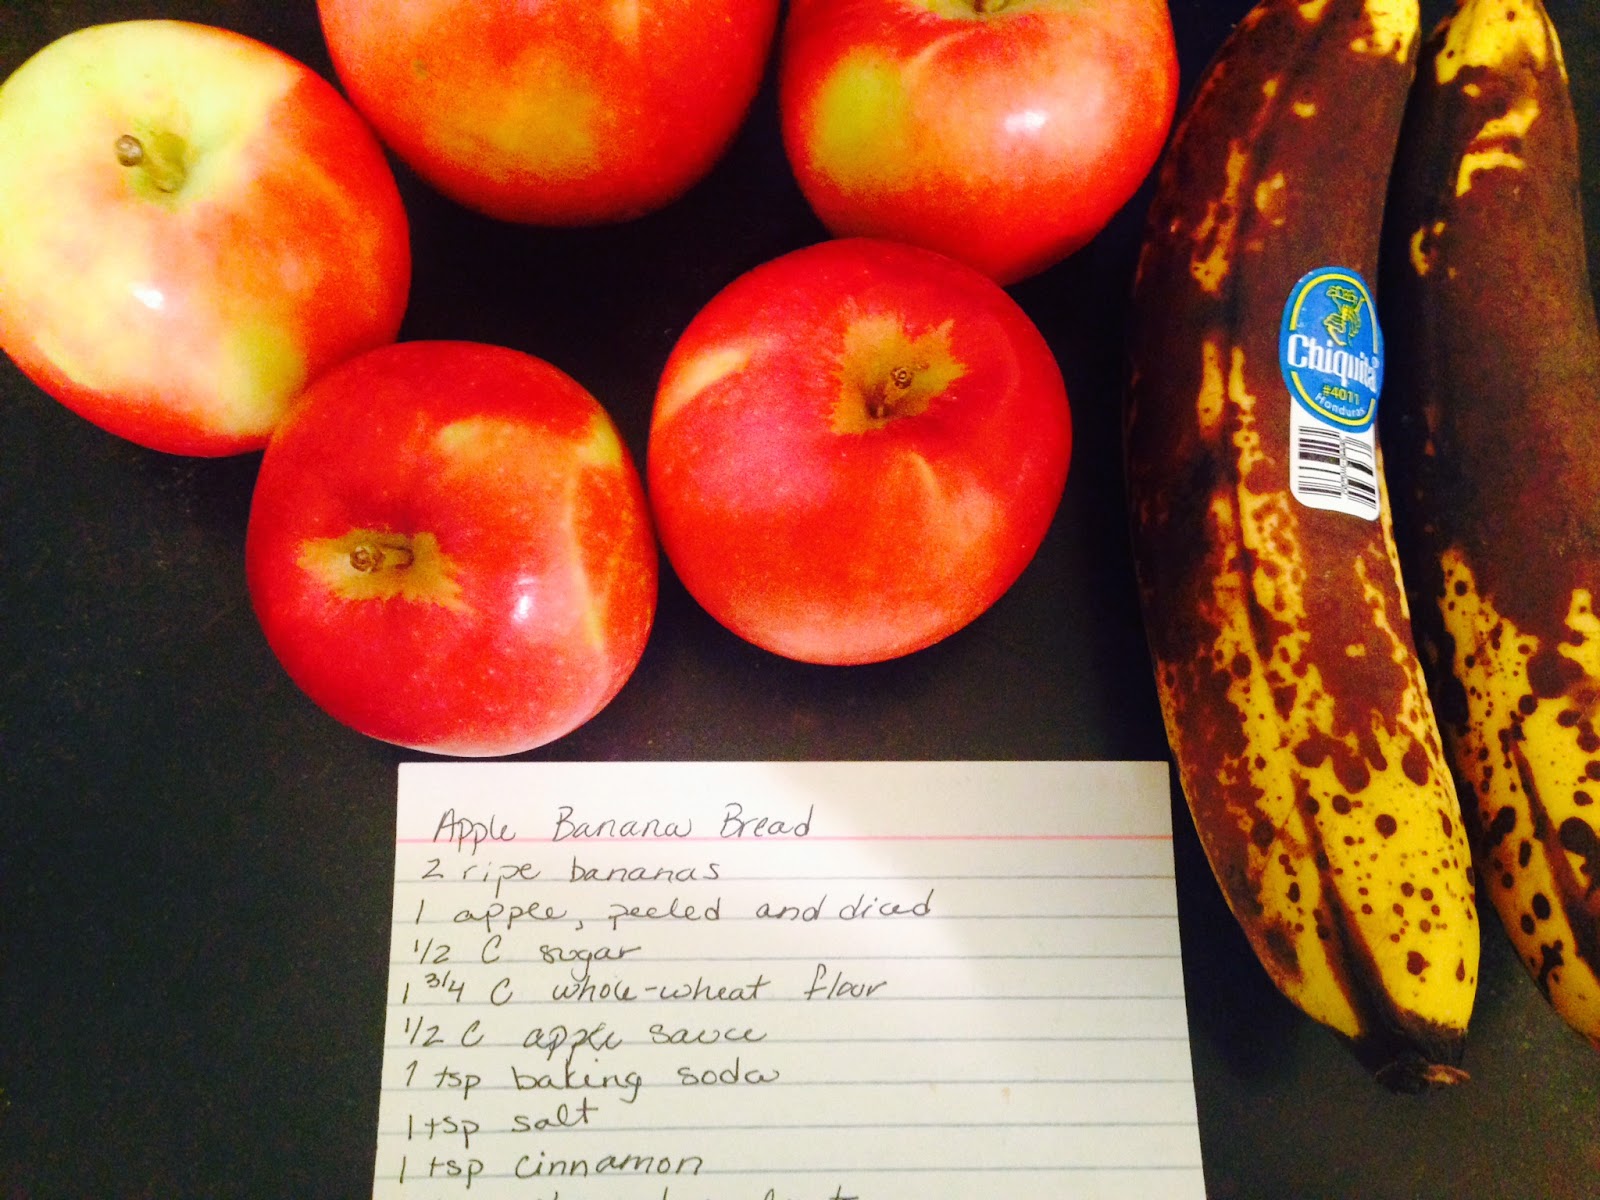 Chiquita
#4011
Honduras
Apple Banana Bread
2 ripe bananas
1 apple, peeled and diced
1/2 C sugar
1 3/4 C whole-wheat flour
1/2 C apple sauce
1 tsp baking soda
1 tsp salt
1 tsp cinnamon